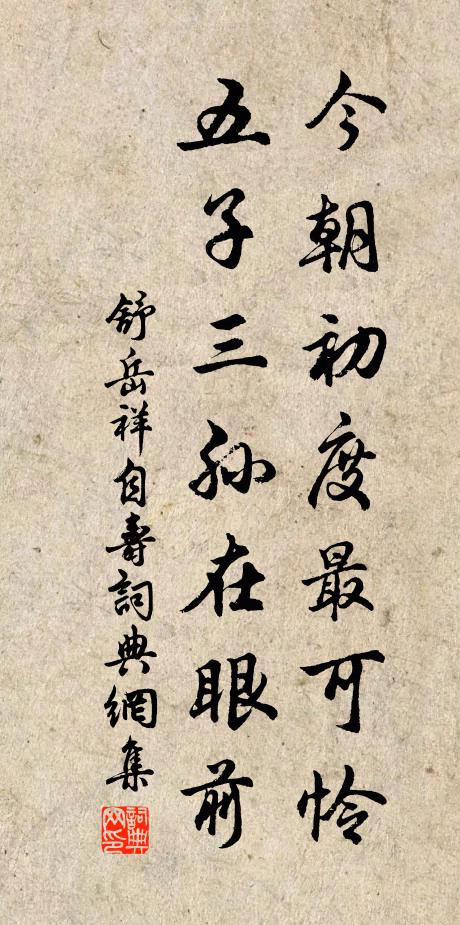 今朝初度最可怜
五子三孙在眼前
舒岳祥自壽詞典網集
詞典网印